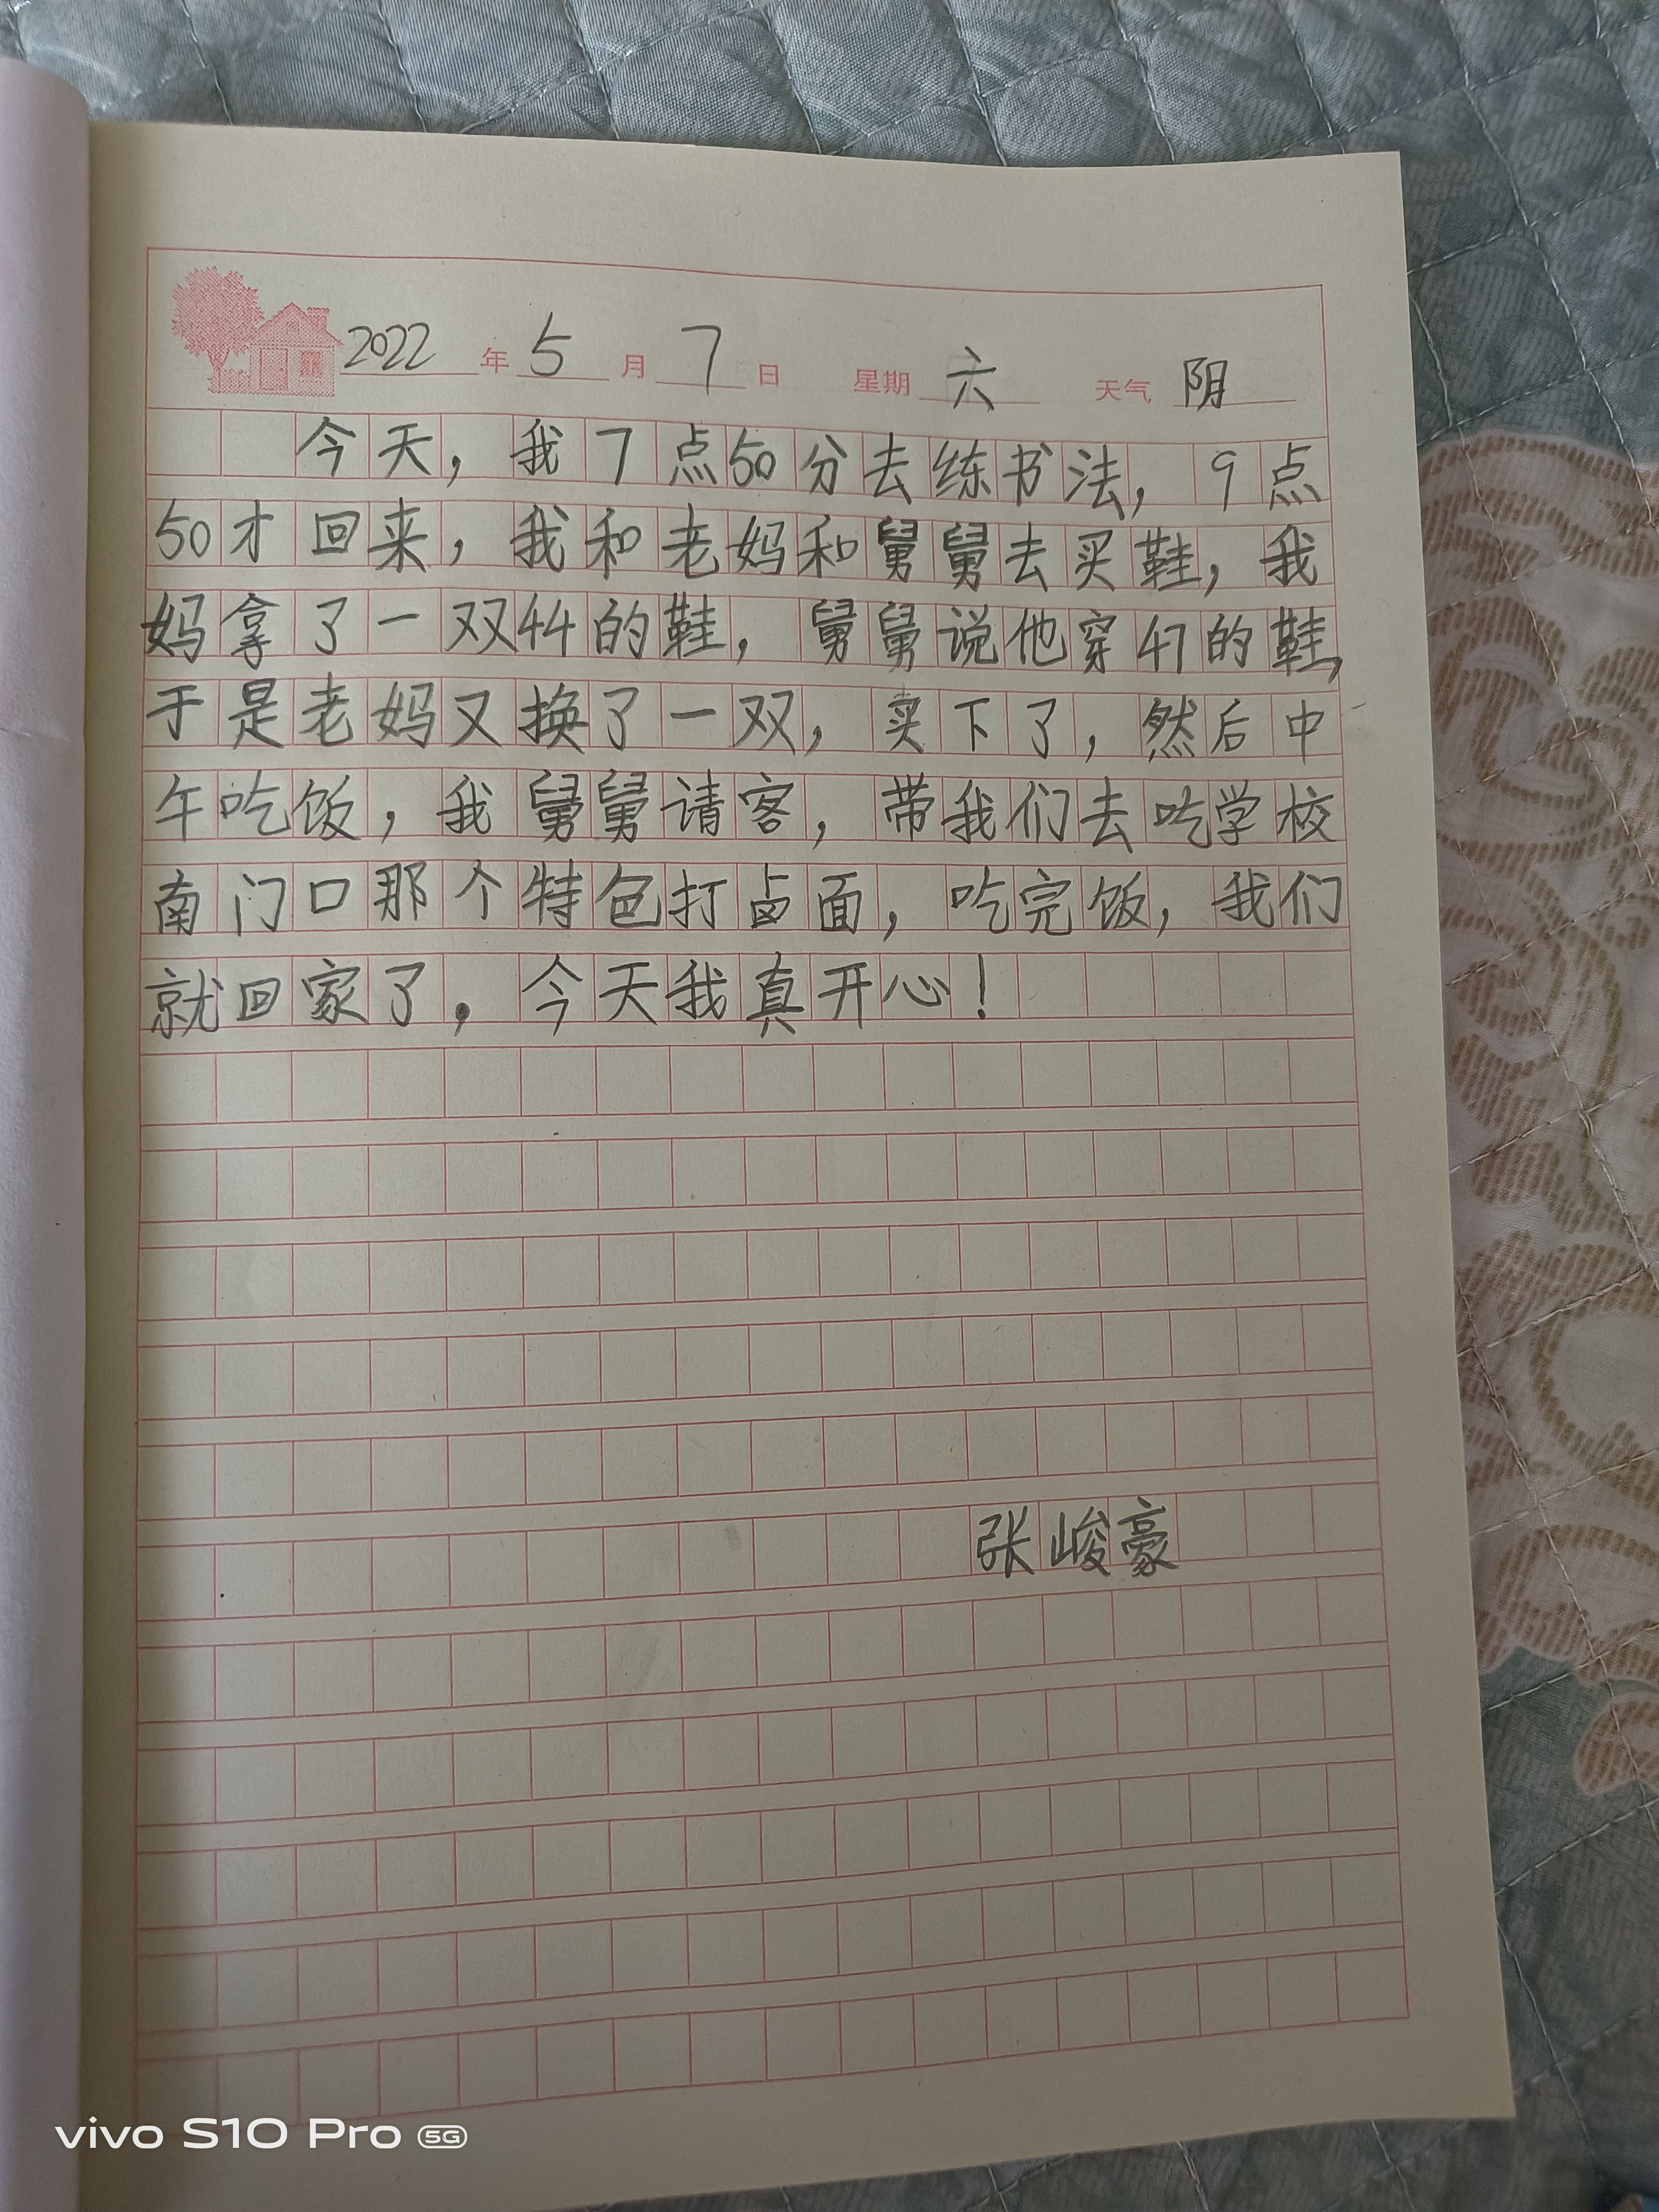 2022年5月7日 星期六 天气阴
今天，我7点50分去练书法，9点
50才回来，我和老妈和舅舅去买鞋，我
妈拿了一双44的鞋，舅舅说他穿41的鞋，
于是老妈又换了一双，卖下了，然后中
午吃饭，我舅舅请客，带我们去吃学校
南门口那个特色打卤面，吃完饭，我们
就回家了，今天我真开心！
张峻豪
vivo S10 Pro 5G